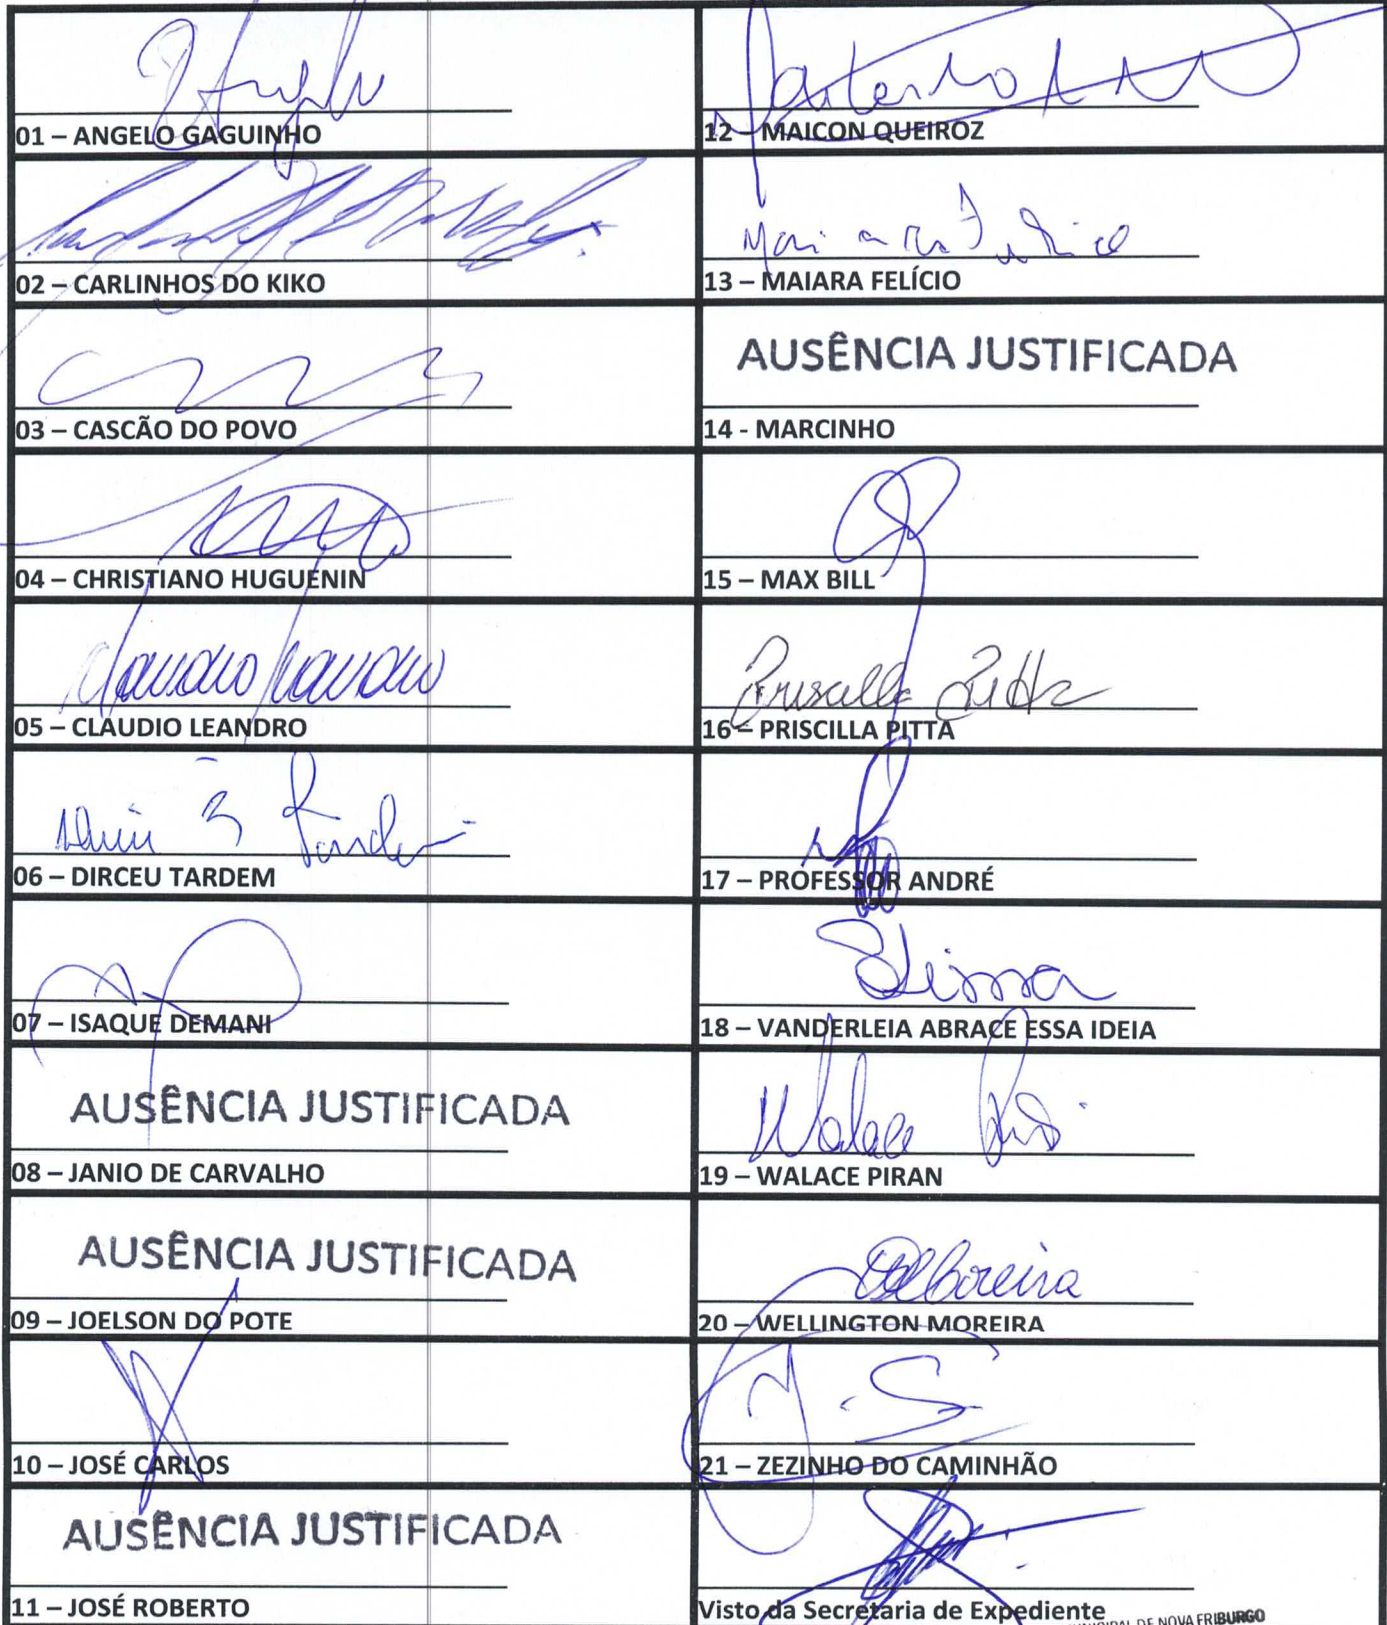 01 – ANGELO GAGUINHO
02 – CARLINHOS DO KIKO
03 – CASCÃO DO POVO
04 – CHRISTIANO HUGUENIN
Claudio Leandro
05 – CLAUDIO LEANDRO
06 – DIRCEU TARDEM
07 – ISAQUE DEMANI
AUSÊNCIA JUSTIFICADA
08 – JANIO DE CARVALHO
AUSÊNCIA JUSTIFICADA
09 – JOELSON DO POTE
10 – JOSÉ CARLOS
AUSÊNCIA JUSTIFICADA
11 – JOSÉ ROBERTO
12 – MAICON QUEIROZ
13 – MAIARA FELÍCIO
AUSÊNCIA JUSTIFICADA
14 - MARCINHO
15 – MAX BILL
Priscilla Pitta
16 – PRISCILLA PITTA
17 – PROFESSOR ANDRÉ
18 – VANDERLEIA ABRACE ESSA IDEIA
Walace
19 – WALACE PIRAN
20 – WELLINGTON MOREIRA
21 – ZEZINHO DO CAMINHÃO
Visto da Secretaria de Expediente
DE NOVA FRIBURGO